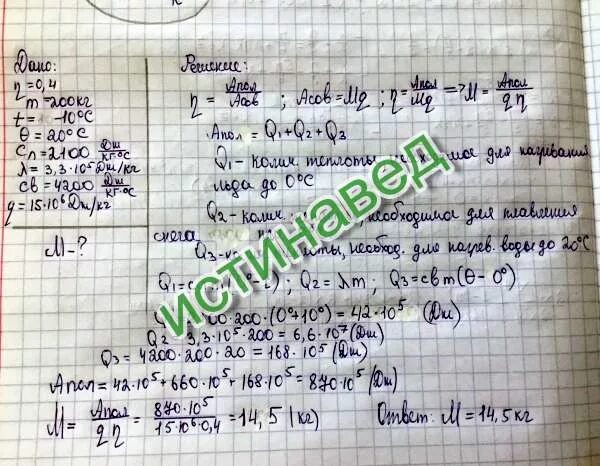 Дано:
η = 0,4
m = 200кг
t = -10°С
θ = 20°С
Cл = 2100 Дж/кг·°С
λ = 3,3·10⁵ Дж/кг
Cв = 4200 Дж/кг·°С
q = 15·10⁶ Дж/кг
M - ?
Решение:
η = Aпол/Aсов ; Aсов = Mq ; η = Aпол/Mq => M = Aпол/qη
Aпол = Q₁ + Q₂ + Q₃
Q₁ - колич. теплоты для нагревания
льда до 0°С
Q₂ - колич. необходимое для плавления
снега
Q₃ - необход. для нагрев. воды до 20°С
Q₁ = ; Q₂ = λm ; Q₃ = cвm(θ - 0°)
200·(0°+10°) = 42·10⁵ (Дж)
Q₂ = 3,3·10⁵·200 = 6,6·10⁷ (Дж)
Q₃ = 4200·200·20 = 168·10⁵ (Дж)
Aпол = 42·10⁵ + 660·10⁵ + 168·10⁵ = 870·10⁵ (Дж)
M = Aпол/qη = 870·10⁵/15·10⁶·0,4 = 14,5 (кг)
Ответ: M = 14,5 кг
истинавед